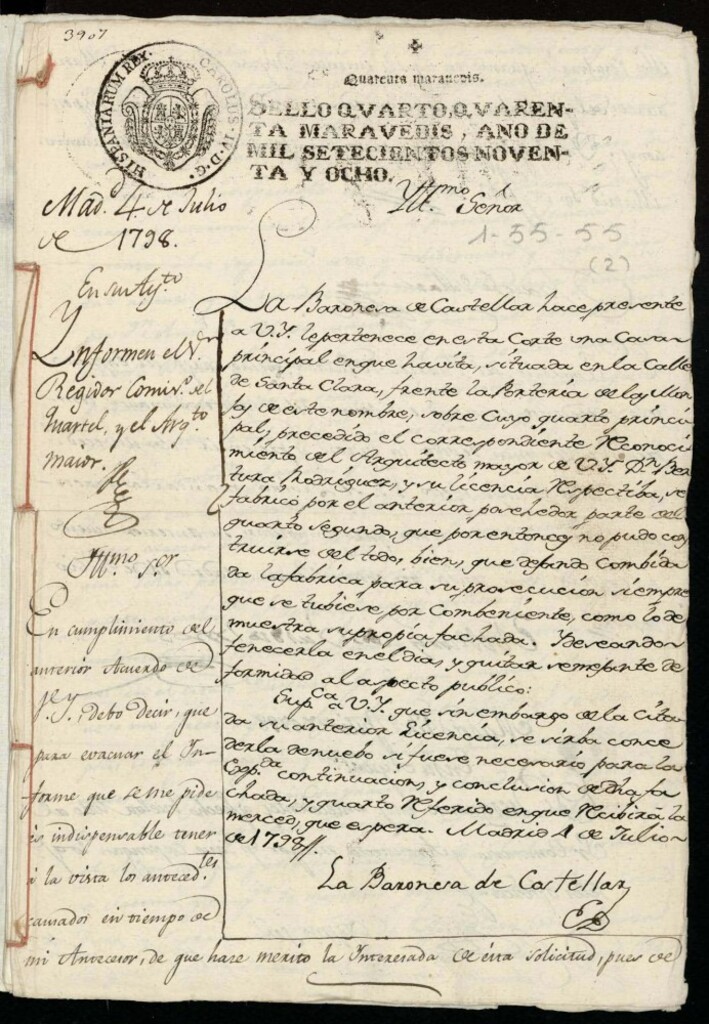 3907
HISPANIARUM REX. CAROLUS·IV·D·G·
Quarenta maravedis.
SELLO QVARTO, QVAREN-
TA MARAVEDIS, AÑO DE
MIL SETECIENTOS NOVEN-
TA Y OCHO.
Yll.mo Señor
1-55-55
(2)
Mad.d 4 de Julio
de 1798.
En su Ay.to
Ynformen el S.r
Regidor Comis.o del
Quartel, y el Arq.to
maior.
La Baronesa de Castellar hace presente
a V.Y. le pertenece en esta Corte una Casa
principal en que havita, situada en la Calle
de Santa Clara, frente la Porteria de las Mon
jas de este nombre, sobre Cuyo quarto princi
pal, precedido el correspondiente Reconoci
miento del Arquitecto mayor de V.Y. D.n Ben
tura Rodriguez, y su licencia Respectiba, se
fabricó por el anterior poshehedor parte del
quarto segundo, que por entonces no pudo cons
truirse del todo, bien, que dejando Combida
da la fabrica para su prosecucion siempre
que se tubiese por Combeniente, como lo de
muestra su propia fachada. Y deseando
fenecerla en el dia, y quitar semejante de
formidad al aspecto publico:
Sup.ca a V.Y. que sin embargo de la Cita
da su anterior Licencia, se sirba conce
derla de nuebo si fuese necesario para la
Exp.da continuacion, y conclusion de dha fa
chada, y quarto Referido en que Recibirá la
merced, que espera. Madrid 4 de Julio
de 1798
La Baronesa de Castellar
Yll.mo S.or
En cumplimiento del
anterior Acuerdo de
V.Y. debo decir, que
para evacuar el In-
forme que se me pide
es indispensable tener
á la vista los anteced.tes
causados en tiempo de
mi Antecesor, de que hase merito la Interesada en esta solicitud, pues de